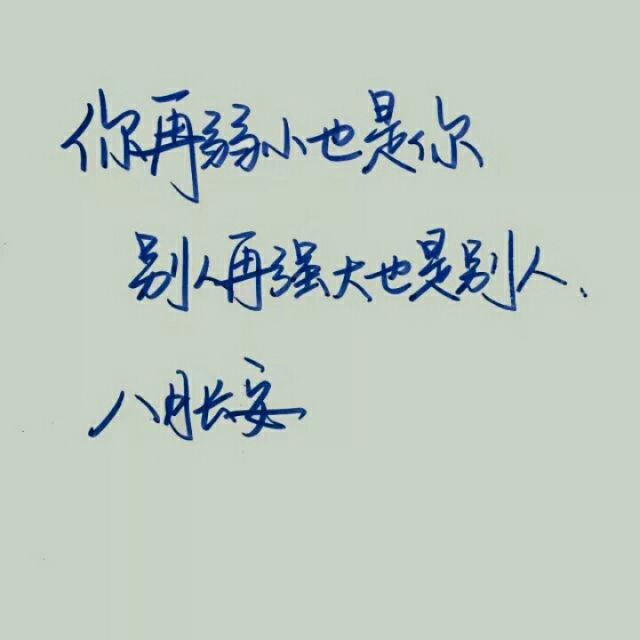 你再弱小也是你
别人再强大也是别人.
八月长安